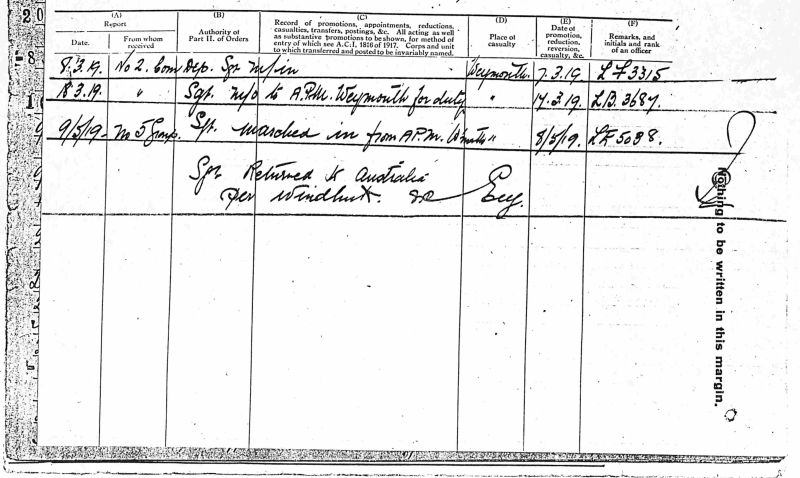 20
(A)
Report
Date.
From whom received
(B)
Authority of Part II. of Orders
(C)
Record of promotions, appointments, reductions,
casualties, transfers, postings, &c. All acting as well
as substantive promotions to be shown, for method of
entry of which see A.C.I. 1816 of 1917. Corps and unit
to which transferred and posted to be invariably named.
(D)
Place of casualty
(E)
Date of promotion, reduction, reversion, casualty, &c.
(F)
Remarks, and initials and rank of an officer
8.3.19. No 2. Com Dep. Sgt m/in Weymouth. 7.3.19. LF3315
18.3.19. " Sgt. m/o to A.P.M. Weymouth for duty " 17.3.19. LB.3687.
9/5/19. No 5 Group. Sgt. marched in from A.P.M. " 8/5/19. LE5088.
Returned to Australia
per Windhuk. Eng.
Nothing to be written in this margin.